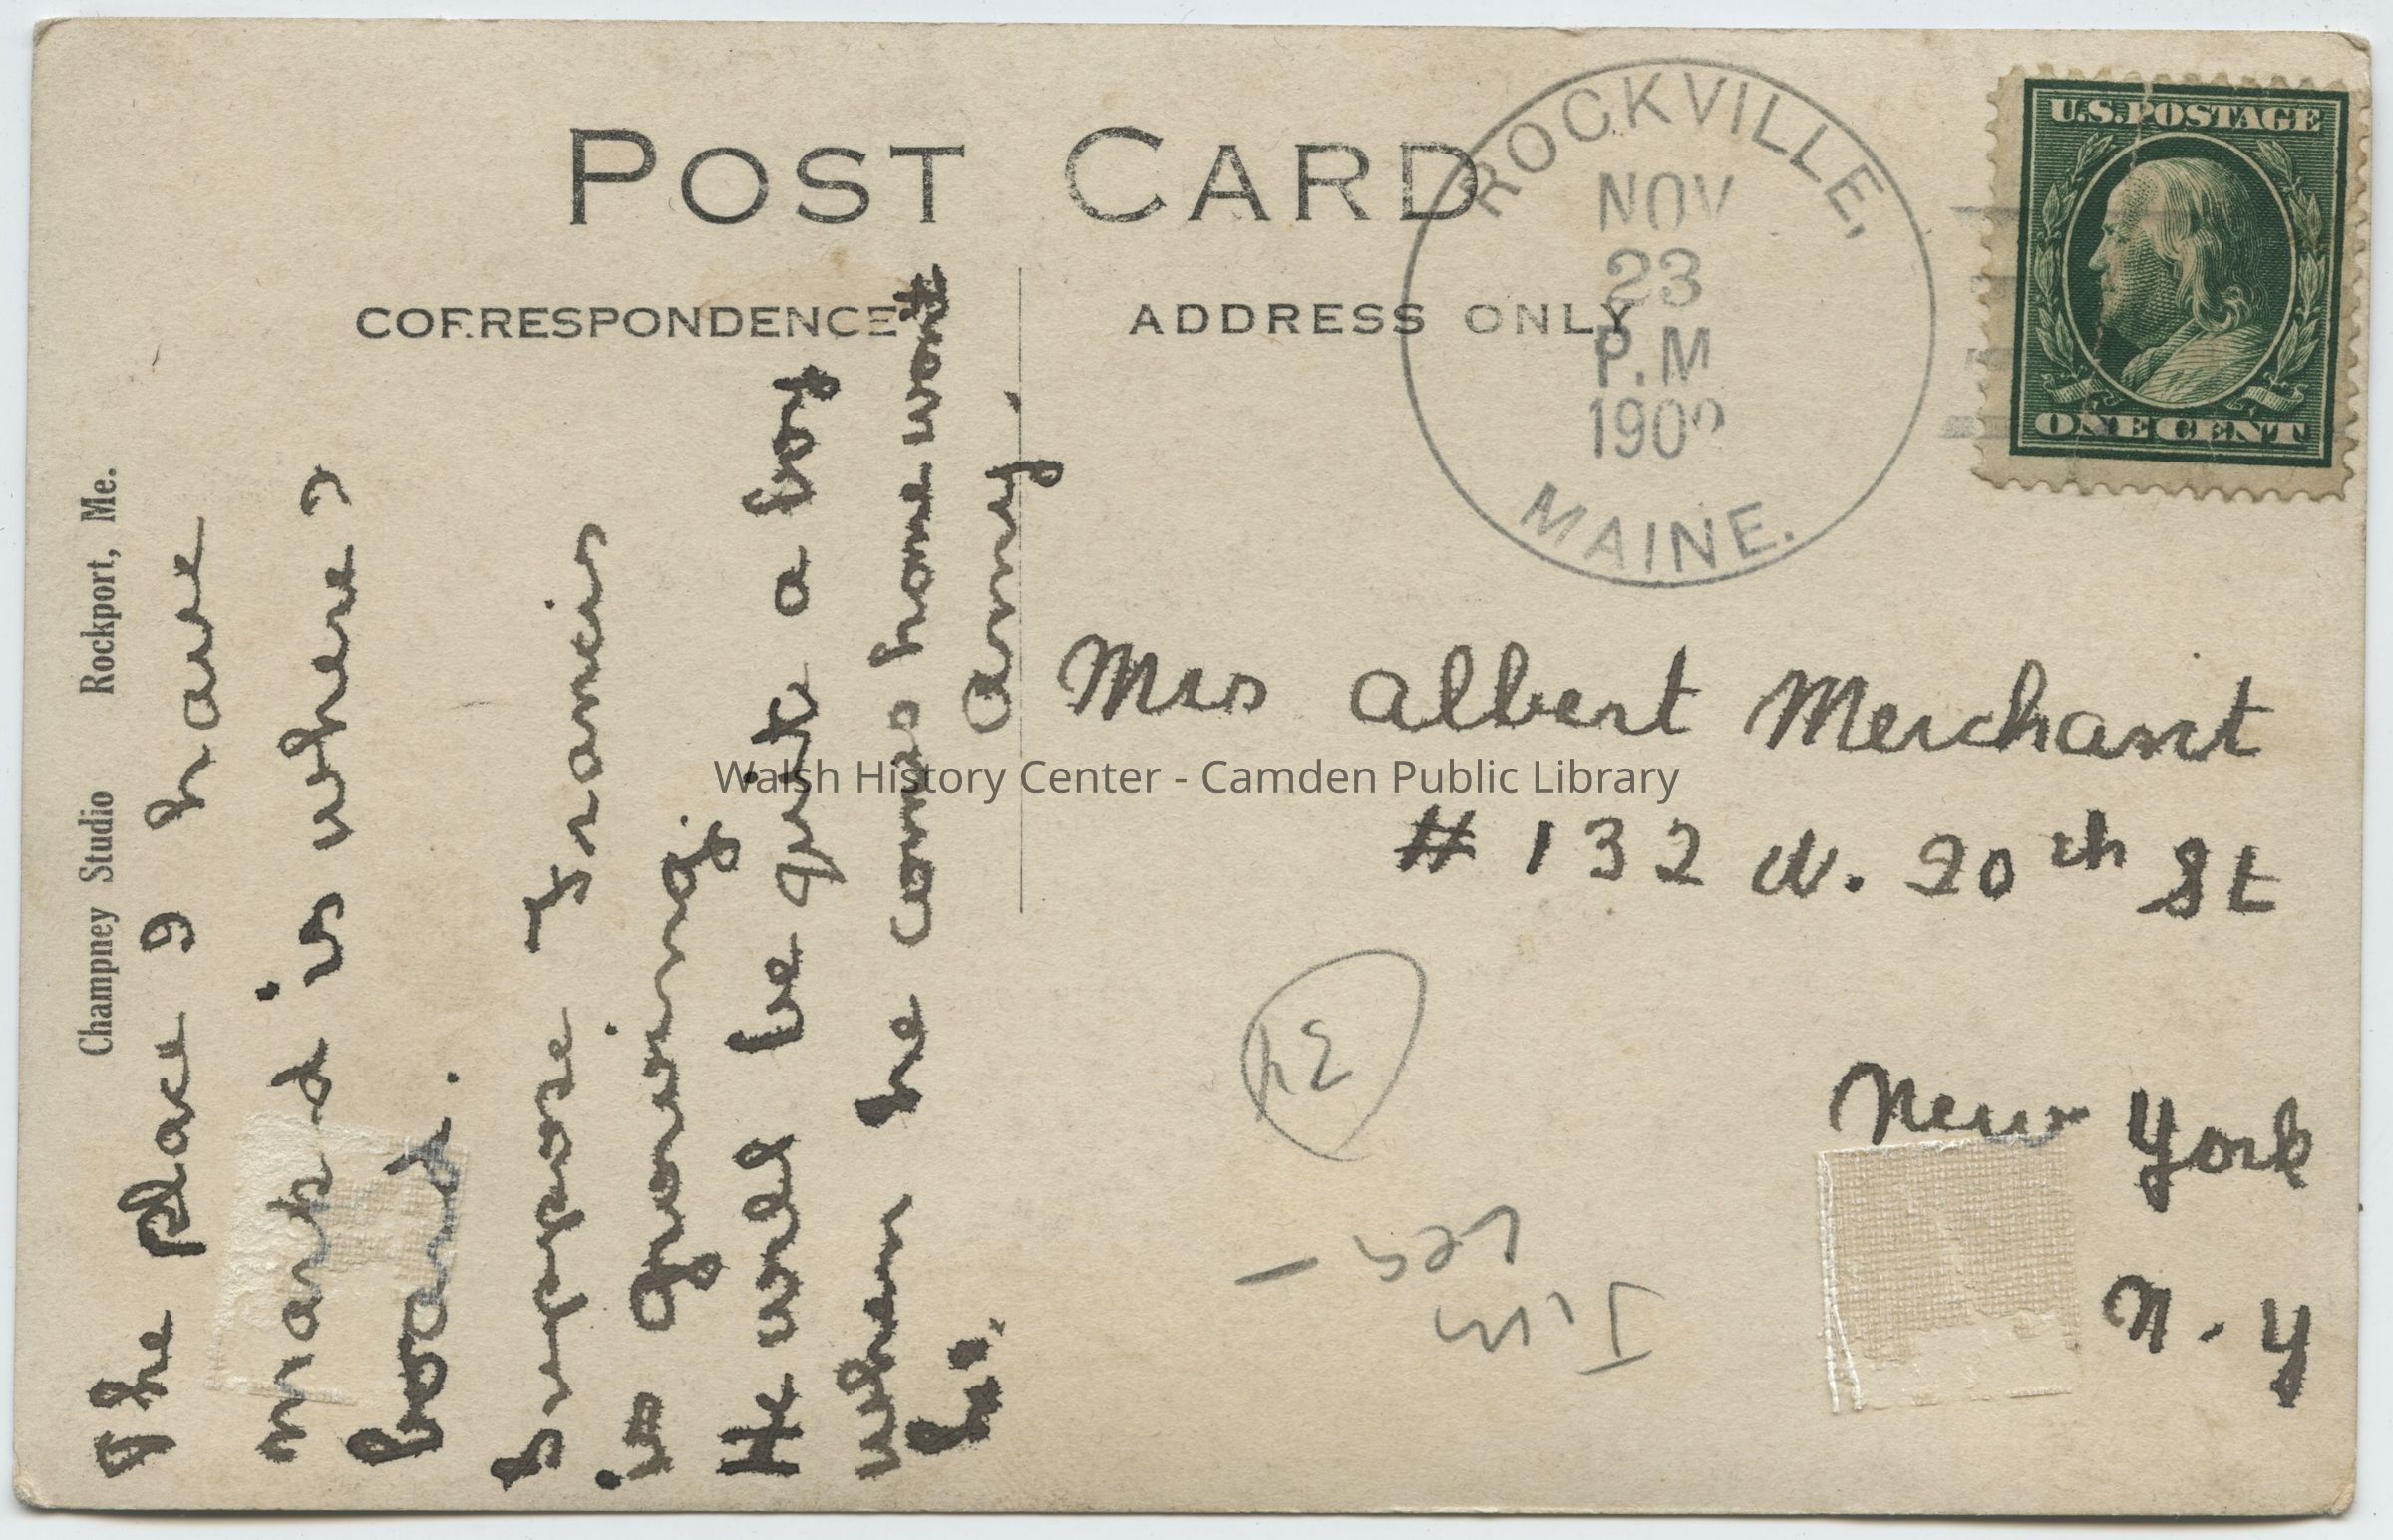 POST CARD
CORRESPONDENCE
ADDRESS ONLY
ROCKVILLE,
NOV
23
P.M
190
MAINE.
U.S. POSTAGE
ONE CENT
Champney Studio Rockport, Me.
The place I have
mark d is where I
board.
Suppose Francis
is growing.
He will be quite a boy
when he comes home wont
he.
Amy.
Mrs Albert Merchant
# 132 W. 20th St
New York
N. Y
Walsh History Center - Camden Public Library